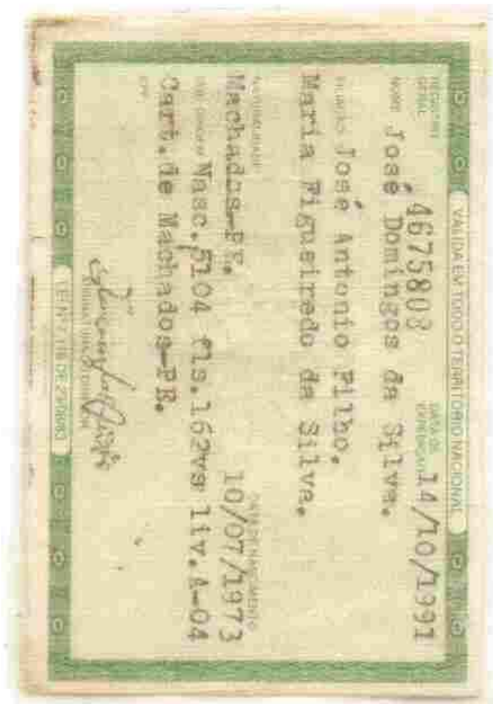 VÁLIDA EM TODO O TERRITÓRIO NACIONAL
REGISTRO GERAL 4675803 DATA DE EXPEDIÇÃO 14/10/1991
NOME José Domingos da Silva.
FILIAÇÃO José Antonio Filho.
Maria Figueiredo da Silva.
NATURALIDADE DATA DE NASCIMENTO
Machados-PE. 10/07/1973
DOC. ORIGEM Nasc. 5104 fls.162vs liv.A-04
Cart.de Machados-PE.
CPF
ASSINATURA DO DIRETOR
LEI Nº 7.116 DE 29/08/83